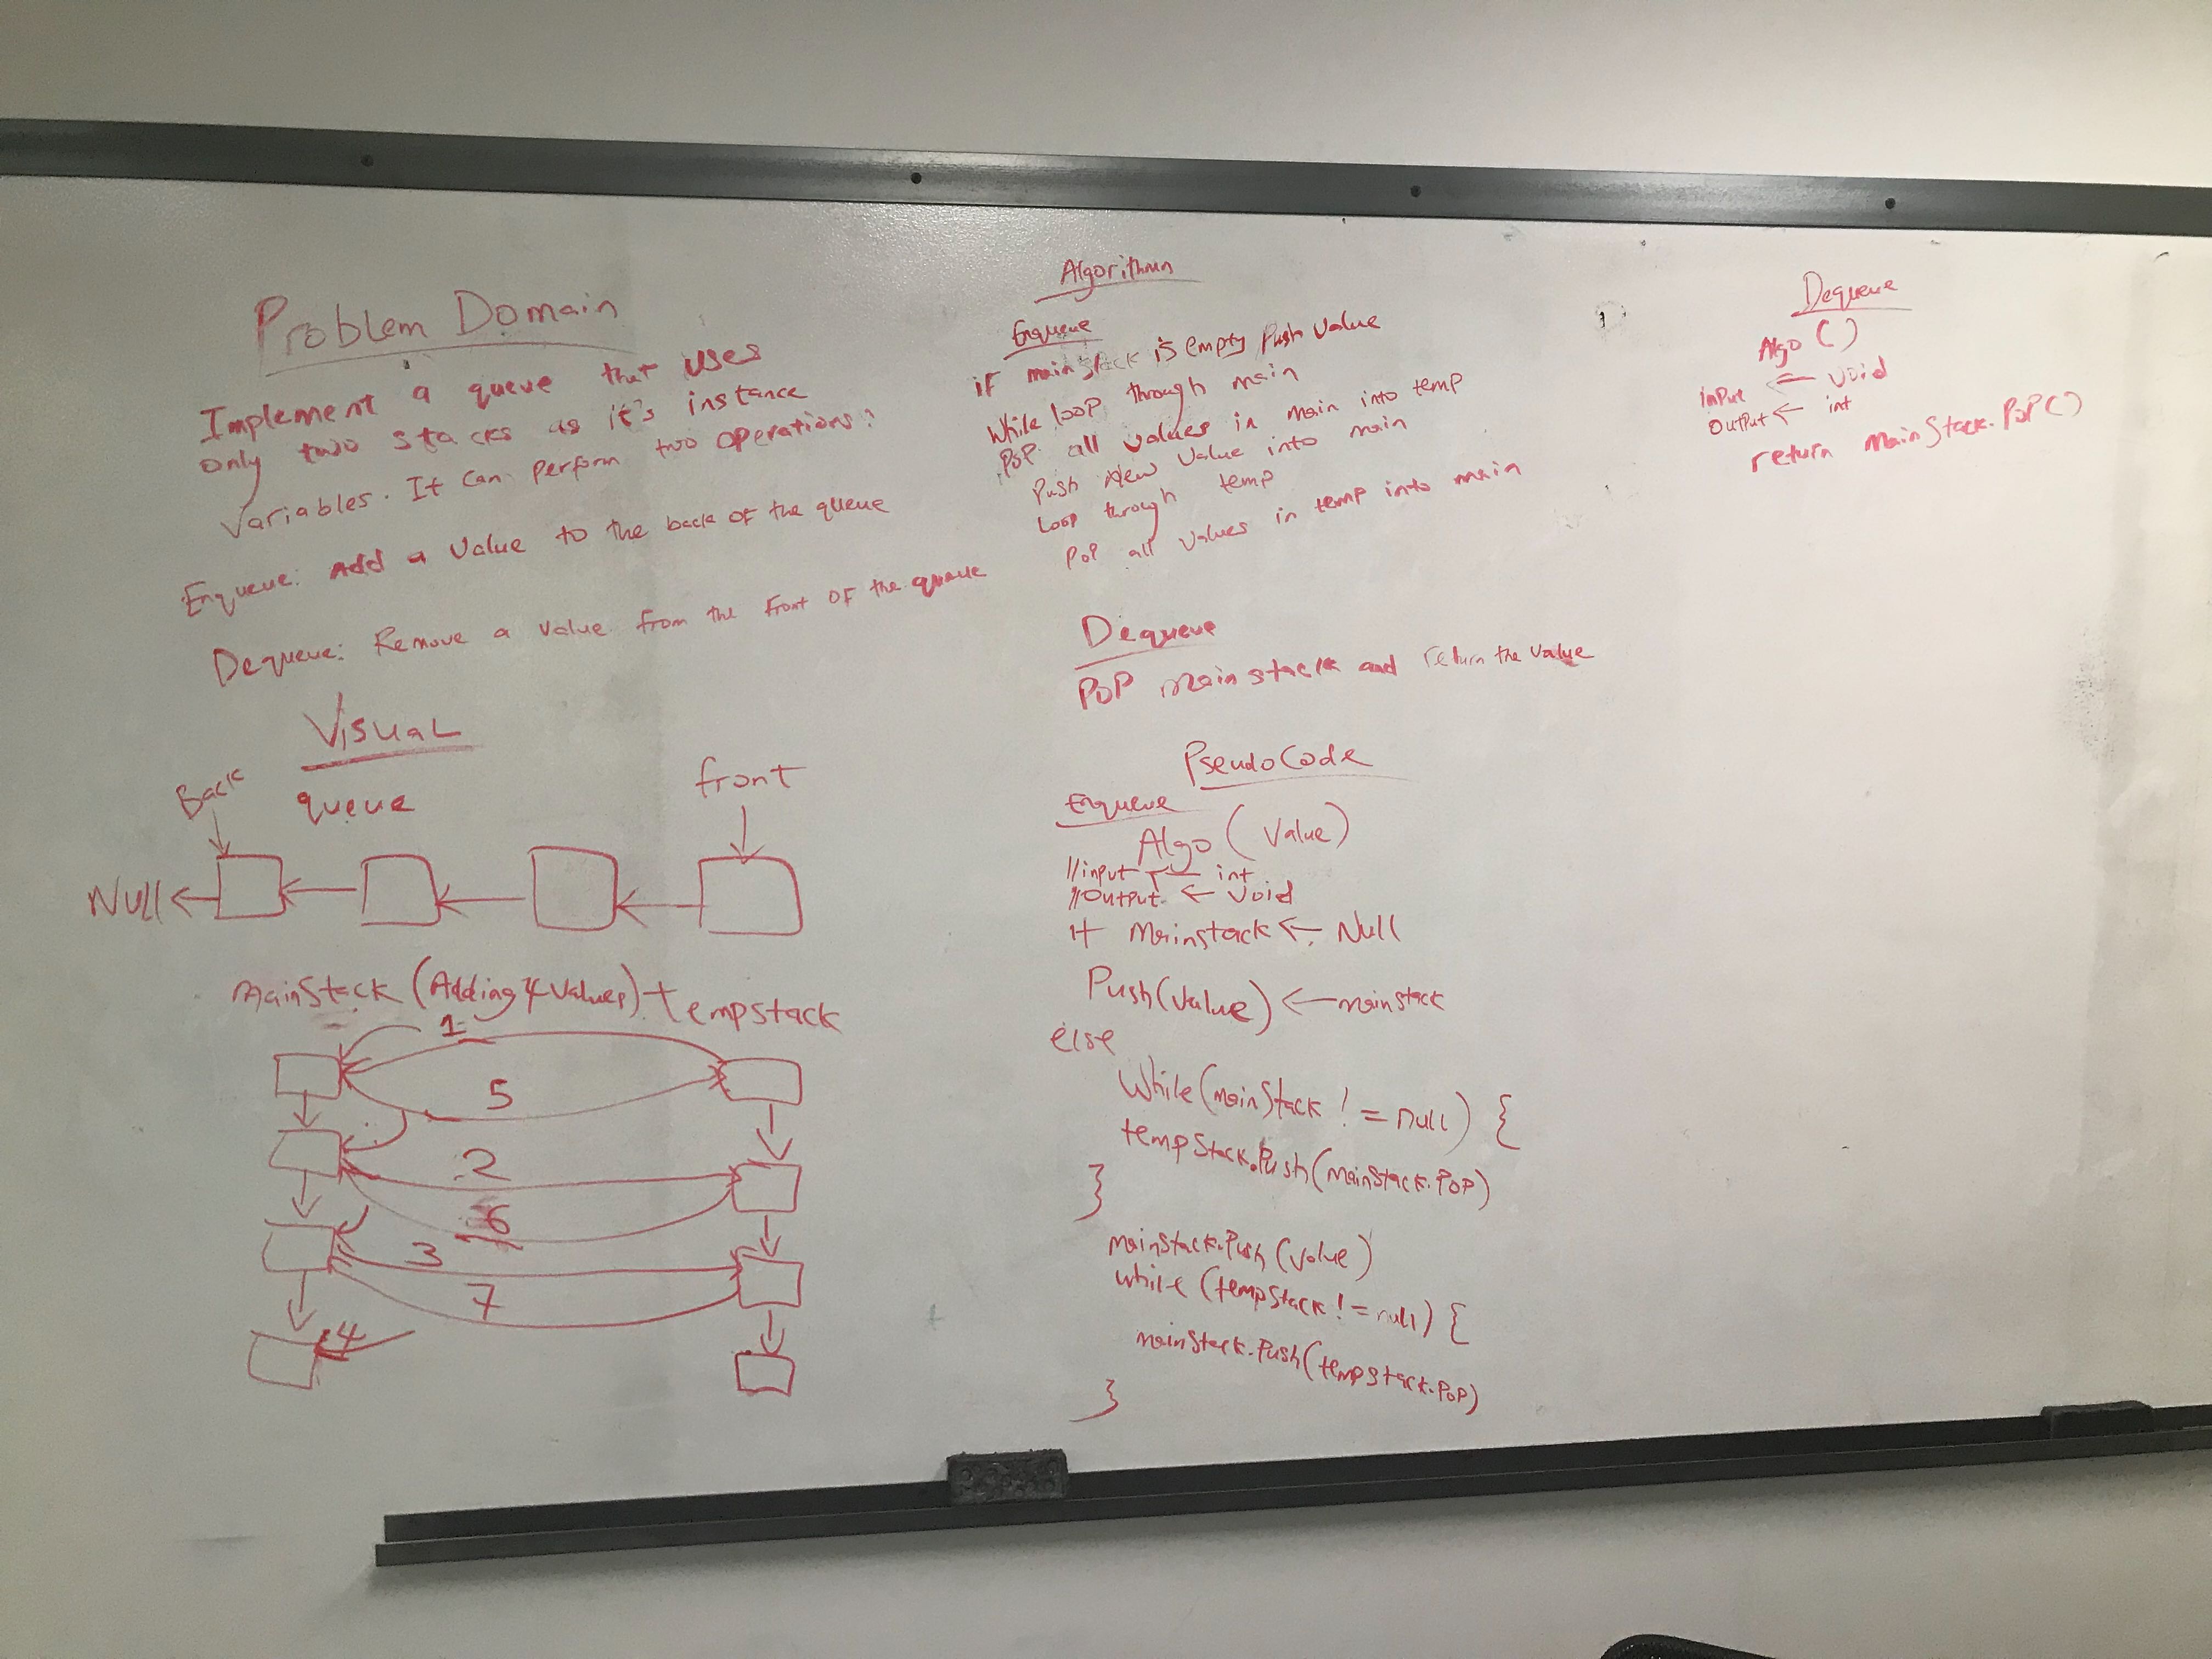 Problem Domain
Implement a queue that uses
only two stacks as it's instance
Variables. It can perform two operations:
Enqueue: Add a Value to the back of the queue
Dequeue: Remove a value from the front of the queue
Visual
queue
Back
front
Null
MainStack (Adding 4 values) tempstack
1
5
2
6
3
7
4
Algorithm
Enqueue
if main stack is empty push value
While loop through main
Pop all values in main into temp
Push New Value into main
Loop through temp
Pop all values in temp into main
Dequeue
Pop main stack and return the value
PseudoCode
Enqueue
Algo (Value)
//input ← int
//Output ← Void
if Mainstack ← Null
Push(Value) ← mainstack
else
While(mainStack != null) {
tempStack.Push(MainStack.Pop)
}
mainStack.Push(value)
while (tempStack != null) {
mainStack.Push(tempstack.Pop)
}
Dequeue
Algo ()
input ← Void
Output ← int
return MainStack.PoP()